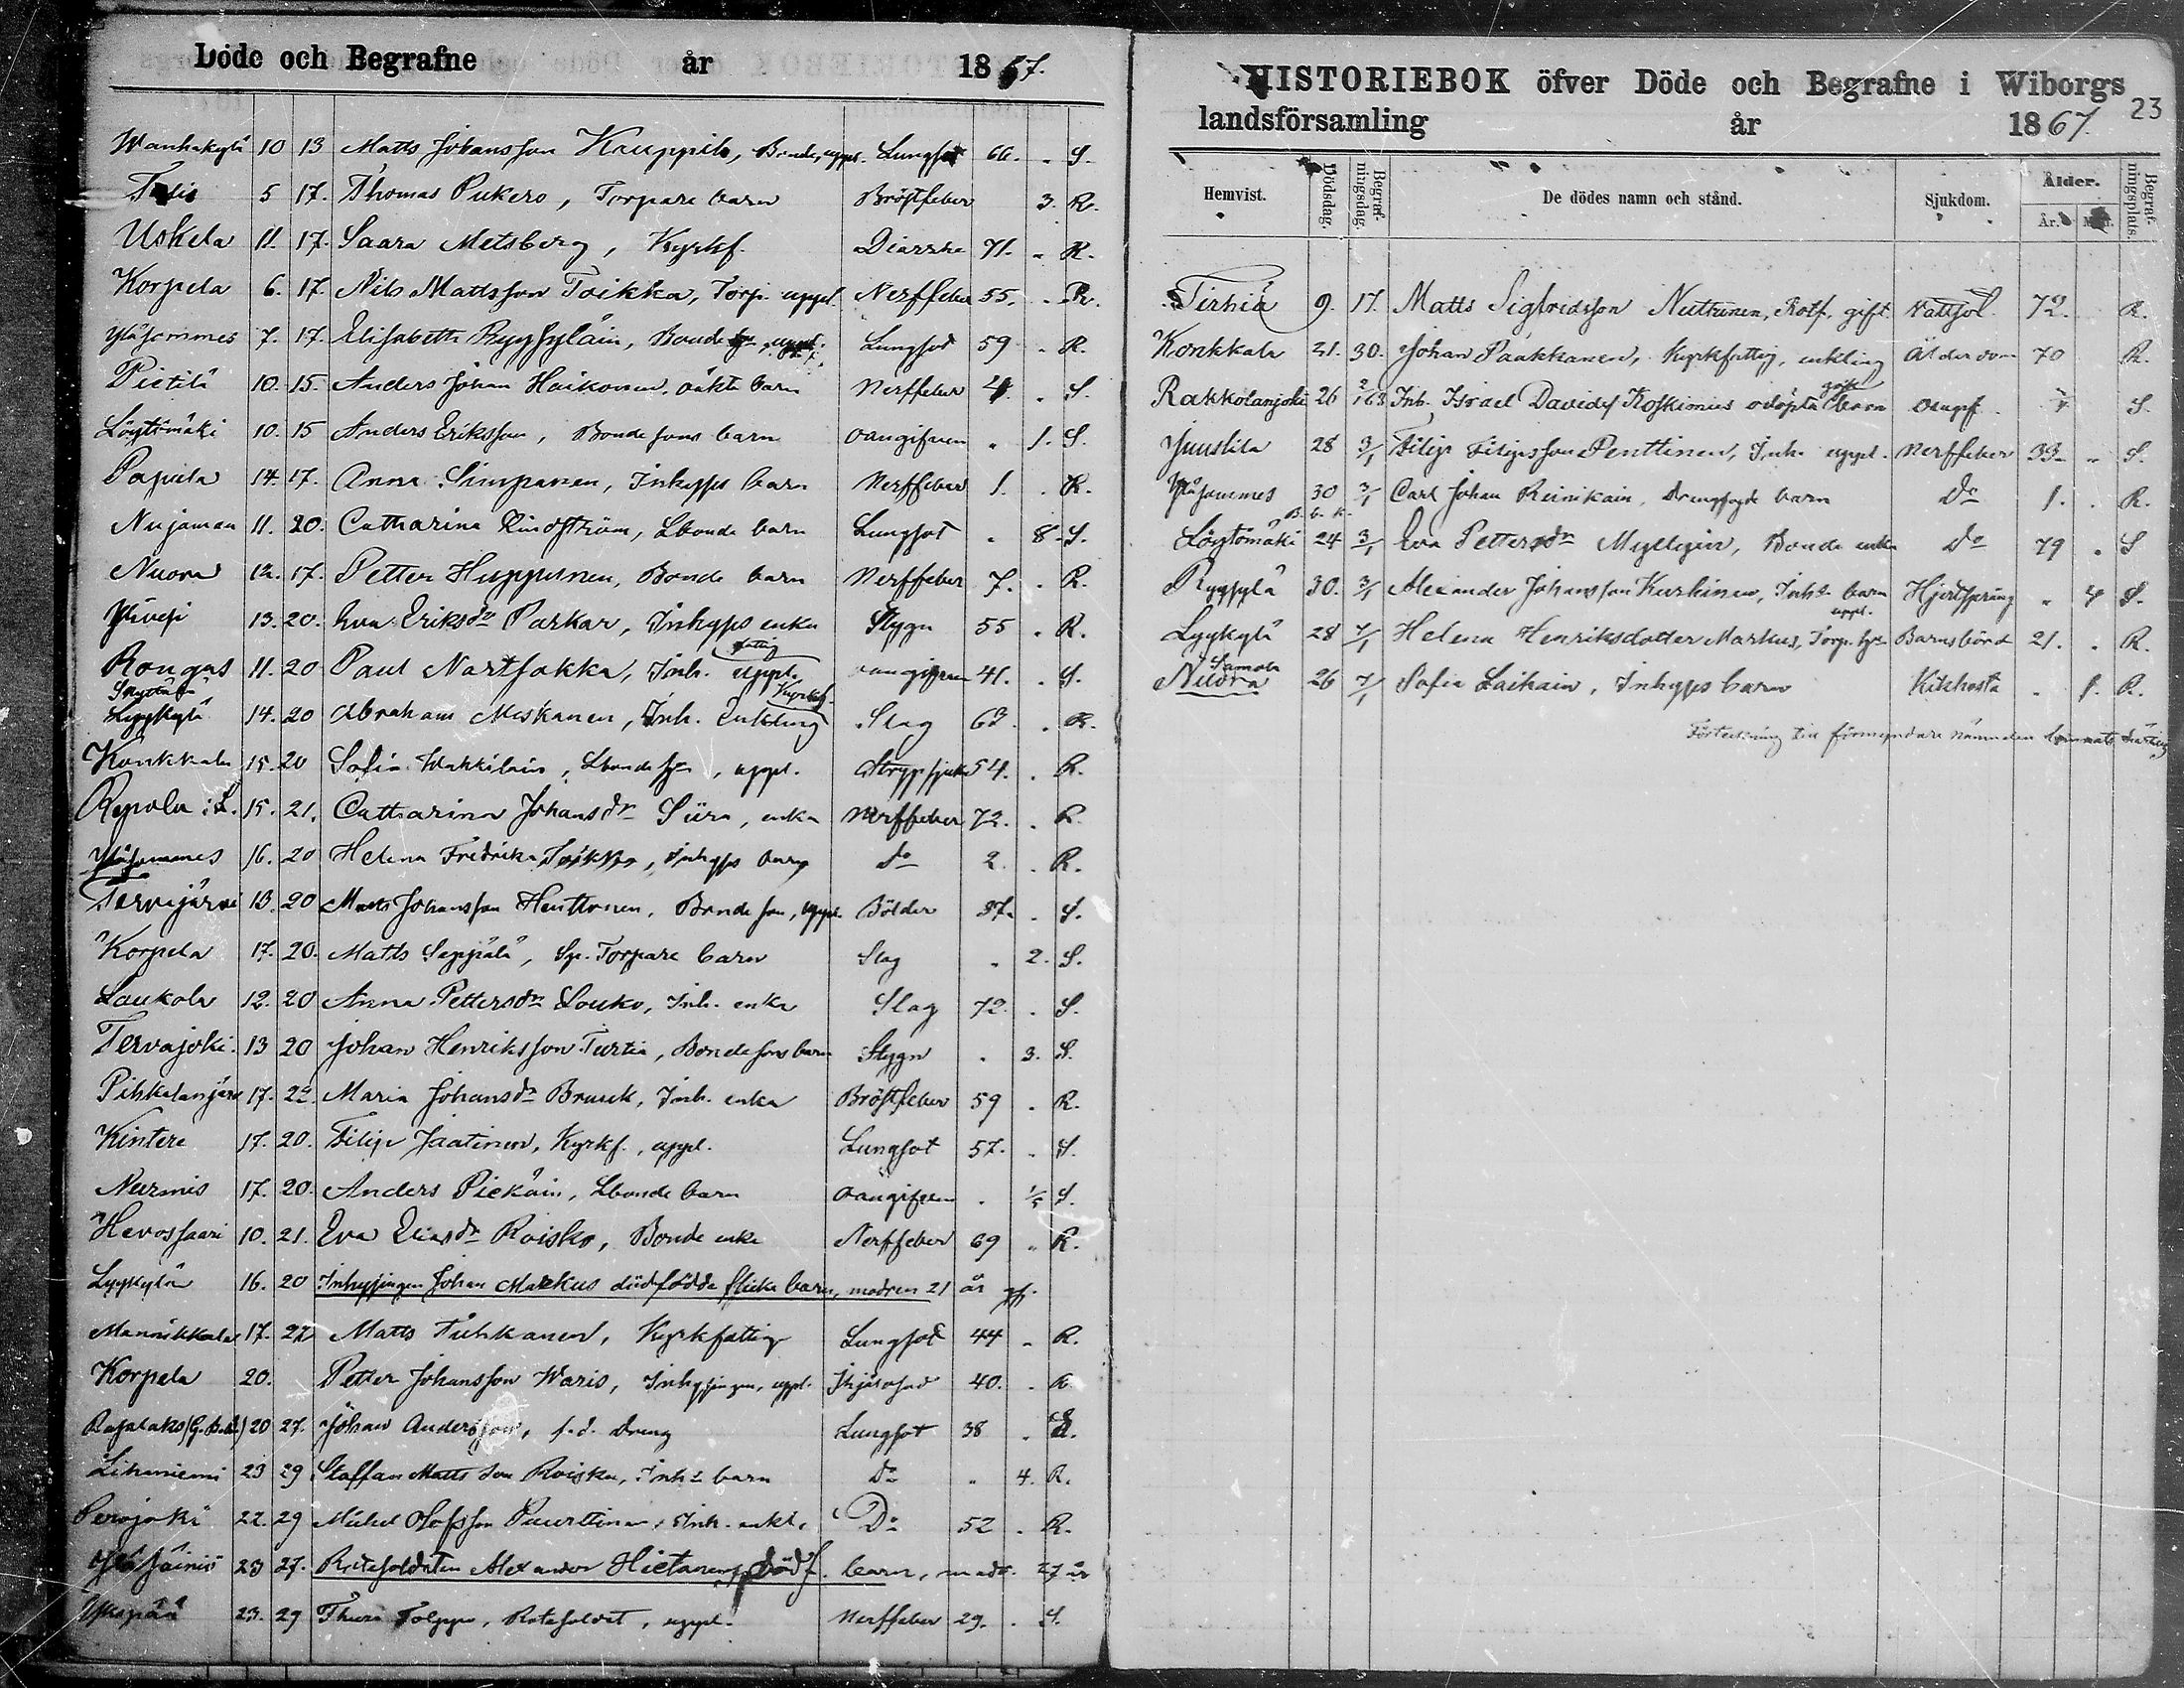 Döde och Begrafne år 1867.
Wanhakylä 10 13 Matts Johansson Kauppila, Bonde, uppl. Lungsot 66. " S.
5 17. Thomas Pukero, Torpare barn Bröstfeber 3. R.
Uskela 11. 17. Saara Metsberg, Kyrkf. Diarrhe 71. " R.
Korpela 6. 17. Nils Mattsson Toikka, Torp. uppl. Nerffeber 55. " R.
7. 17. Elisabeth Bonde Lungsot 59 " R.
Pietilä 10. 15. Anders Johan Haikonen oäkta barn Nerffeber 4. " S.
Löytömäki 10. 15 Anders Eriksson, Bonde sons barn oangifven " 1. S.
Papula 14. 17. Anna Simpanen, Inhyses barn Nerffeber 1. . R.
Nuijaman 11. 20. Catharina Lindström, Lbonde barn Lungsot " 8. S.
Nuora 12. 17. Petter Huppunen, Bonde barn Nerffeber 7. . R.
13. 20. Eva Eriksdr Parkar, Inhyses enka Stygn 55 . R.
Rongas 11. 20 Paul Nartsakka, Inh. fattig uppl. oangifven 41. . S.
Lyykylä 14. 20 Abraham Miskanen, Inh. Enkling Kyrkof. Slag 63. . R.
Konkkala 15. 20 Sofia Wakkilain, Lbonde , uppl. Strypsjuka 54. . R.
Repola 15. 21. Catharina Johansdr Siira, enka Nerffeber 72. . R.
16. 20 Helena Fredrika Toikka, Inhyses barn Do 2. . R.
Tervajärvi 13. 20 Matts Johansson Henttonen, Bonde son, uppl. Bölder 37. . S.
Korpela 17. 20. Matts Seppälä, Sp. Torpare barn Slag " 2. S.
Laukola 12. 20 Anna Pettersdr Louko, Inh. enka Slag 72. . S.
Tervajoki. 13 20 Johan Henriksson Turtia, Bondesons barn Stygn . 3. S.
17. Maria Johansdr Bruuk, Inh. enka Bröstfeber 59 . R.
Kintere 17. 20. Filip Jaatinen, Kyrkf., uppl. Lungsot 57. . S.
Nurmis 17. 20. Anders Piekäin, Lbonde barn oangifven . 1/5 S.
Hevossaari 10. 21. Eva Eliasdr Roisko, Bonde enka Nerffeber 69 " R.
Lyykylä 16. 20 Inhysingen Johan Markus dödfödda flicka barn, modren 21 år
Mannikkala 17. 27 Matts Tuhkanen, Kyrkfattig Lungsot 44 " R.
Korpela 20. Petter Johansson Waris, Inhysingen, uppl. 40. . R.
20 27. Johan Andersson, f.d. Dreng Lungsot 38 .
Lihaniemi 23 29 Staffan Mattsson Roisko, Inhs barn Do " 4. R.
Perojoki 22. 29 Mickel Olofsson Puurttinen, Inh. enkl. Do 52 . R.
23 27. Rotesoldaten Alexander Hietanens dödf. barn, modr. 27 år
Ykspää 23. 29 Thure Tolppa, Rotesoldat, uppl. Nerffeber 29. . S.
HISTORIEBOK öfver Döde och Begrafne i Wiborgs
landsförsamling år 1867. 23
Hemvist. Dödsdag. Begrafningsdag. De dödes namn och stånd. Sjukdom. Ålder. År. Mån. Begrafningsplats.
Tirhiä 9. 17. Matts Sigfridsson Nuttunen, Rotf. gift. Vattsot. 72. R.
Konkkala 21. 30. Johan Paakkanen, Kyrkfattig, enkling Ålderdom 70 R.
Rakkolanjoki 26 Inh. Israel Davids Koskimies odöpta barn S.
Juustila 28 3/1 Filip Filipsson Penttinen, Inh. uppl. Nerffeber 33. " S.
30 3/1 Carl Johan Reinikain, Drengfogde barn Do 1. . R.
Löytömäki 24 3/1 Eva Pettersdr Myllyin, Bonde enka Do 79 . S
30. 3/1 Alexander Johansson Kurkinen, Inhs. barn Hjertsprång " 4 S.
Lyykylä 28 7/1 Helena Henriksdotter Markus, Torp. uppl. Barnsbörd 21. . R.
Samola
Nuora 26 7/1 Sofia Laikain, Inhyses barn Kikhosta . 1. R.
Förteckning till förmyndare nämnden